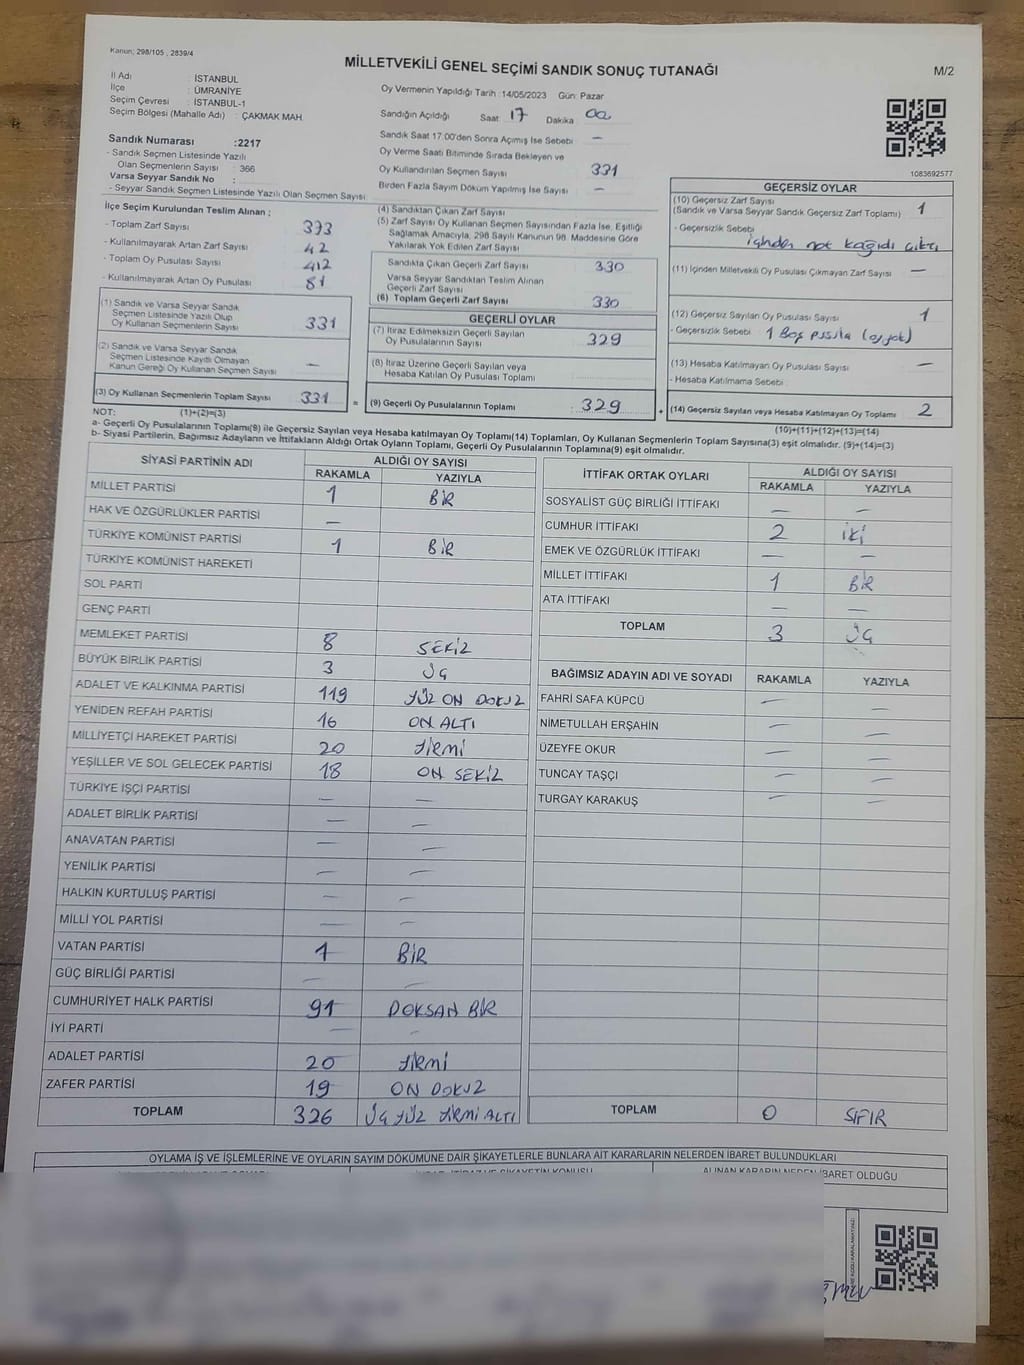 Kanun; 298/105 , 2839/4
MİLLETVEKİLİ GENEL SEÇİMİ SANDIK SONUÇ TUTANAĞI
M/2
İl Adı : İSTANBUL
İlçe : ÜMRANİYE
Seçim Çevresi : İSTANBUL-1
Seçim Bölgesi (Mahalle Adı) : ÇAKMAK MAH.
Oy Vermenin Yapıldığı Tarih :14/05/2023 Gün: Pazar
Sandığın Açıldığı Saat: 17 Dakika 00
Sandık Saat 17:00'den Sonra Açımış İse Sebebi —
Oy Verme Saati Bitiminde Sırada Bekleyen ve
Oy Kullandırılan Seçmen Sayısı 331
Birden Fazla Sayım Döküm Yapılmış İse Sayısı —
Sandık Numarası :2217
- Sandık Seçmen Listesinde Yazılı
Olan Seçmenlerin Sayısı : 366
Varsa Seyyar Sandık No :
- Seyyar Sandık Seçmen Listesinde Yazılı Olan Seçmen Sayısı
1083692577
İlçe Seçim Kurulundan Teslim Alınan ;
- Toplam Zarf Sayısı 373
- Kullanılmayarak Artan Zarf Sayısı 42
- Toplam Oy Pusulası Sayısı 412
- Kullanılmayarak Artan Oy Pusulası 81
(1) Sandık ve Varsa Seyyar Sandık
Seçmen Listesinde Yazılı Olup
Oy Kullanan Seçmenlerin Sayısı 331
(2) Sandık ve Varsa Seyyar Sandık
Seçmen Listesinde Kayıtlı Olmayan
Kanun Gereği Oy Kullanan Seçmen Sayısı —
(3) Oy Kullanan Seçmenlerin Toplam Sayısı 331 =
(4) Sandıktan Çıkan Zarf Sayısı
(5) Zarf Sayısı Oy Kullanan Seçmen Sayısından Fazla İse, Eşitliği
Sağlamak Amacıyla, 298 Sayılı Kanunun 98. Maddesine Göre
Yakılarak Yok Edilen Zarf Sayısı
Sandıkta Çıkan Geçerli Zarf Sayısı 330
Varsa Seyyar Sandıktan Teslim Alınan
Geçerli Zarf Sayısı
(6) Toplam Geçerli Zarf Sayısı 330
GEÇERLİ OYLAR
(7) İtiraz Edilmeksizin Geçerli Sayılan
Oy Pusulalarının Sayısı 329
(8) İtiraz Üzerine Geçerli Sayılan veya
Hesaba Katılan Oy Pusulası Toplamı
(9) Geçerli Oy Pusulalarının Toplamı : 329 +
GEÇERSİZ OYLAR
(10) Geçersiz Zarf Sayısı
(Sandık ve Varsa Seyyar Sandık Geçersiz Zarf Toplamı) 1
- Geçersizlik Sebebi
içinden not kağıdı çıktı
(11) İçinden Milletvekili Oy Pusulası Çıkmayan Zarf Sayısı —
(12) Geçersiz Sayılan Oy Pusulası Sayısı 1
- Geçersizlik Sebebi : 1 Boş pusula (oy yok)
(13) Hesaba Katılmayan Oy Pusulası Sayısı —
- Hesaba Katılmama Sebebi
(14) Geçersiz Sayılan veya Hesaba Katılmayan Oy Toplamı 2
NOT: (1)+(2)=(3)
(10)+(11)+(12)+(13)=(14)
a- Geçerli Oy Pusulalarının Toplamı(9) ile Geçersiz Sayılan veya Hesaba katılmayan Oy Toplamı(14) Toplamları, Oy Kullanan Seçmenlerin Toplam Sayısına(3) eşit olmalıdır. (9)+(14)=(3)
b- Siyasi Partilerin, Bağımsız Adayların ve İttifakların Aldığı Ortak Oyların Toplamı, Geçerli Oy Pusulalarının Toplamına(9) eşit olmalıdır.
SİYASİ PARTİNİN ADI ALDIĞI OY SAYISI
RAKAMLA YAZIYLA
MİLLET PARTİSİ 1 BİR
HAK VE ÖZGÜRLÜKLER PARTİSİ —
TÜRKİYE KOMÜNİST PARTİSİ 1 BİR
TÜRKİYE KOMÜNİST HAREKETİ
SOL PARTİ
GENÇ PARTİ
MEMLEKET PARTİSİ 8 SEKİZ
BÜYÜK BİRLİK PARTİSİ 3 ÜÇ
ADALET VE KALKINMA PARTİSİ 119 YÜZ ON DOKUZ
YENİDEN REFAH PARTİSİ 16 ON ALTI
MİLLİYETÇİ HAREKET PARTİSİ 20 YİRMİ
YEŞİLLER VE SOL GELECEK PARTİSİ 18 ON SEKİZ
TÜRKİYE İŞÇİ PARTİSİ — —
ADALET BİRLİK PARTİSİ — —
ANAVATAN PARTİSİ — —
YENİLİK PARTİSİ — —
HALKIN KURTULUŞ PARTİSİ — —
MİLLİ YOL PARTİSİ — —
VATAN PARTİSİ 1 BİR
GÜÇ BİRLİĞİ PARTİSİ — —
CUMHURİYET HALK PARTİSİ 91 DOKSAN BİR
İYİ PARTİ — —
ADALET PARTİSİ 20 YİRMİ
ZAFER PARTİSİ 19 ON DOKUZ
TOPLAM 326 ÜÇ YÜZ YİRMİ ALTI
İTTİFAK ORTAK OYLARI ALDIĞI OY SAYISI
RAKAMLA YAZIYLA
SOSYALİST GÜÇ BİRLİĞİ İTTİFAKI — —
CUMHUR İTTİFAKI 2 İKİ
EMEK VE ÖZGÜRLÜK İTTİFAKI — —
MİLLET İTTİFAKI 1 BİR
ATA İTTİFAKI — —
TOPLAM 3 ÜÇ
BAĞIMSIZ ADAYIN ADI VE SOYADI RAKAMLA YAZIYLA
FAHRİ SAFA KÜPCÜ — —
NİMETULLAH ERŞAHİN — —
ÜZEYFE OKUR — —
TUNCAY TAŞÇI — —
TURGAY KARAKUŞ — —
TOPLAM 0 SIFIR
OYLAMA İŞ VE İŞLEMLERİNE VE OYLARIN SAYIM DÖKÜMÜNE DAİR ŞİKAYETLERLE BUNLARA AİT KARARLARIN NELERDEN İBARET BULUNDUKLARI
ALINAN KARARIN NEDEN İBARET OLDUĞU